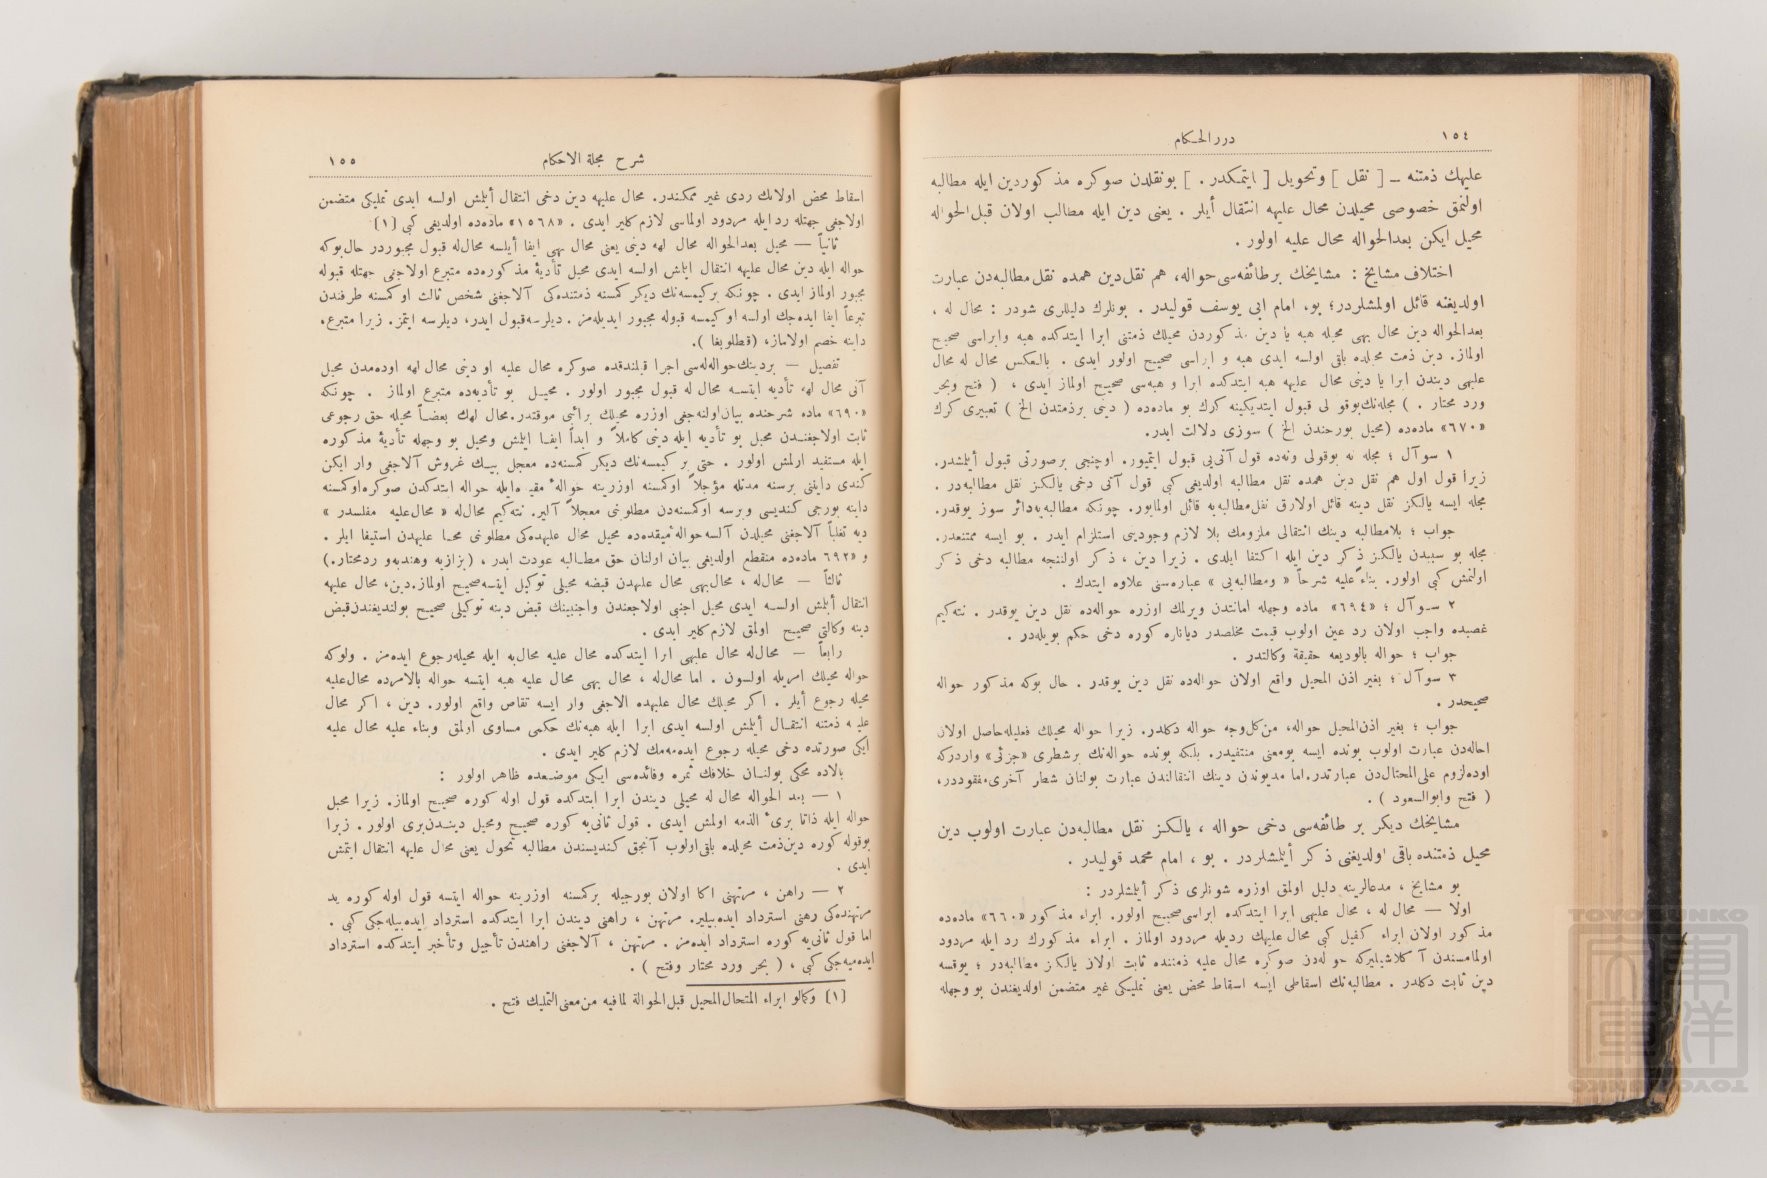 ١٥٤
درر الحكام
عليهك ذمتنه ــ [ نقل ] وتحويل [ ايتمكدر . ] بونقلدن صوكره مذكوردين ايله مطالبه
اولنمق خصوصى محيلدن محال عليهه انتقال أيلر . يعنى دين ايله مطالب اولان قبل الحواله
محيل ايكن بعدالحواله محال عليه اولور .
اختلاف مشايخ : مشايخك برطائفه‌سى حواله، هم نقل‌دين همده نقل‌مطالبه‌دن عبارت
اولديغنه قائل اولمشلردر؛ بو، امام ابى يوسف قوليدر . بونلرك دليللرى شودر : محال له ،
بعدالحواله دين محال بهى محيله هبه يا دين مذكوردن محيلك ذمتنى ابرا ايتدكده هبه وابراسى صحيح
اولماز. دين ذمت محيلده باقى اولسه ايدى هبه و ابراسى صحيح اولور ايدى . بالعكس محال له محال
عليهى ديندن ابرا يا دينى محال عليهه هبه ايتدكده ابرا و هبه‌سى صحيح اولماز ايدى ، ( فتح وبحر
ورد محتار . ) مجله‌نك‌بوقو لى قبول ايتديكينه كرك بو ماده‌ده ( دينى برذمتدن الخ ) تعبيرى كرك
«٦٧٠» ماده‌ده (محيل بورجندن الخ ) سوزى دلالت ايدر.
١ سوآل ؛ مجله نه بوقولى ونه‌ده قول آنى‌يى قبول ايتميور. اوچنجى برصورتى قبول أيلمشدر.
زيرا قول اول هم نقل دين همده نقل مطالبه اولديغى كبى قول آنى دخى يالكز نقل مطالبه‌در .
مجله ايسه يالكز نقل دينه قائل اولارق نقل‌مطالبه‌يه قائل اولمايور. چونكه مطالبه‌يه‌دائر سوز يوقدر.
جواب ؛ بلامطالبه دينك انتقالى ملزومك بلا لازم وجودينى استلزام ايدر . بو ايسه ممتنعدر.
مجله بو سببدن يالكز ذكر دين ايله اكتفا ايلدى . زيرا دين ، ذكر اولننجه مطالبه دخى ذكر
اولنمش كبى اولور. بناءً عليه شرحاً « ومطالبه‌يى » عباره‌سنى علاوه ايتدك .
٢ سوآل ؛ «٦٩٤» ماده وجهله امانتدن ويرلمك اوزره حواله‌ده نقل دين يوقدر . نته‌كيم
غصبده واجب اولان رد عين اولوب قيمت مخلصدر ديانلره كوره دخى حكم بويله‌در .
جواب ؛ حواله بالوديعه حقيقة وكالتدر .
٣ سوآل ؛ بغير اذن المحيل واقع اولان حواله‌ده نقل دين يوقدر . حال بوكه مذكور حواله
صحيحدر .
جواب ؛ بغير اذن‌المحيل حواله، من‌كل‌وجه حواله دكلدر. زيرا حواله محيلك فعليله‌حاصل اولان
احاله‌دن عبارت اولوب بونده ايسه بومعنى منتفيدر. بلكه بونده حواله‌نك برشطرى «جزئى» واردركه
اوده‌لزوم على‌المحتال‌دن عبارتدر.اما مديوندن دينك انتقالندن عبارت بولنان شطر آخرى‌مفقوددر،
( فتح وابوالسعود ) .
مشايخك ديكر بر طائفه‌سى دخى حواله ، يالكز نقل مطالبه‌دن عبارت اولوب دين
محيل ذمتنده باقى اولديغنى ذكر أيلمشلردر . بو ، امام محمد قوليدر .
بو مشايخ ، مدعالرينه دليل اولمق اوزره شونلرى ذكر أيلمشلردر :
اولا — محال له ، محال عليهى ابرا ايتدكده ابراسى‌صحيح اولور. ابراء مذكور «٦٦٠» ماده‌ده
مذكور اولان ابراء كفيل كبى محال‌عليهك رديله مردود اولماز . ابراء مذكورك رد ايله مردود
اولمامسندن آكلاشيليركه حوله‌دن صوكره محال عليه ذمتنده ثابت اولان يالكز مطالبه‌در ؛ يوقسه
دين ثابت دكلدر . مطالبه‌نك اسقاطى ايسه اسقاط محض يعنى تمليكى غير متضمن اولديغندن بو وجهله
شرح مجلة الاحكام
١٥٥
اسقاط محض اولانك ردى غير ممكندر. محال عليهه دين دخى انتقال أيلمش اولسه ايدى تمليكى متضمن
اولاجغى جهتله رد ايله مردود اولماسى لازم كلير ايدى . «١٥٦٨» ماده‌ده اولديغى كبى [١]
ثانياً — محيل بعدالحواله محال لهه دينى يعنى محال بهى ايفا أيلسه محال‌له قبوله مجبوردر حال‌بوكه
حواله ايله دين محال عليهه انتقال ايتمش اولسه ايدى محيل تأديهٔ مذكوره‌ده متبرع اولاجغى جهتله قبوله
مجبور اولماز ايدى . چونكه بركيمسه‌نك ديكر كمسنه ذمتنده‌كى آلاجغنى شخص ثالث اوكمسنه طرفندن
تبرعاً ايفا ايده‌جك اولسه اوكيمسه قبوله مجبور ايديله‌مز . ديلرسه‌قبول ايدر، ديلرسه ايتمز. زيرا متبرع،
داينه خصم اولاماز، (قطلوبغا ).
تفصيل — بردينك‌حواله‌له‌سى اجرا قيلندقده صوكره محال عليه او دينى محال لهه اوده‌مدن محيل
آنى محال لهه تأديه ايتسه محال له قبوله مجبور اولور . محيل بو تأديه‌ده متبرع اولماز . چونكه
«٦٩٠» ماده شرحنده بيان‌اولنه‌جغى اوزره محيلك برائتى موقتدر.محال لهك بعضاً محيله حق رجوعى
ثابت اولاجغندن محيل بو تأديه ايله دينى كاملاً و ابداً ايفا ايتمش ومحيل بو وجهله تأديهٔ مذكوره
ايله مستفيد اولمش اولور . حتى بر كيمسه‌نك ديكر كمسنه‌ده معجل بيك غروش آلاجغى وار ايكن
كندى داينى برسنه مدتله مؤجلاً اوكمسنه اوزرينه حوالهٔ مقيده‌ايله حواله ايتدكدن صوكره‌اوكمسنه
داينه بورجى كنديسى ويرسه اوكمسنه‌دن مطلوبنى معجلاً آلير. نته‌كيم محال‌له « محال‌عليه مفلسدر »
ديه تغلباً آلاجغنى محيلدن آلسه‌حوالهٔ مقيده‌ده محيل محال عليهده‌كى مطلوبنى محال عليهدن استيفا ايلر .
و «٦٩٢» ماده‌ده منقطع اولديغى بيان اولنان حق مطالبه عودت ايدر ، (بزازيه وهنديه‌و ردمحتار.)
ثالثاً — محال‌له ، محال‌بهى محال عليهدن قبضه محيلى توكيل ايتسه‌صحيح اولماز.دين، محال عليهه
انتقال أيلمش اولسه ايدى محيل اجنبى اولاجغندن واجنبينك قبض دينه توكيلى صحيح بولنديغندن‌قبض
دينه وكالتى صحيح اولمق لازم كلير ايدى .
رابعاً — محال‌له محال عليهى ابرا ايتدكده محال عليه محال‌به ايله محيله‌رجوع ايده‌مز . ولوكه
حواله محيلك امريله اولسون . اما محال‌له ، محال بهى محال عليهه هبه ايتسه حواله بالامرده محال‌عليه
محيله رجوع أيلر . اكر محيلك محال عليهده الاجغى وار ايسه تقاص واقع اولور. دين ، اكر محال
عليه ذمتنه انتقال أيلمش اولسه ايدى ابرا ايله هبه‌نك حكمى مساوى اولمق وبناء عليه محال عليه
ايكى صورتده دخى محيله رجوع ايده‌مه‌مك لازم كلير ايدى .
بالاده محكى بولنان خلافك ثمره وفائده‌سى ايكى موضعده ظاهر اولور :
١ — بعد الحواله محال له محيلى ديندن ابرا ايتدكده قول اوله كوره صحيح اولماز. زيرا محيل
حواله ايله ذاتا برىٔ الذمه اولمش ايدى . قول ثانى‌يه كوره صحيح ومحيل ديندن‌برى اولور . زيرا
بوقوله كوره دين‌ذمت محيلده باقى‌اولوب آنجق كنديسندن مطالبه تحول يعنى محال عليهه انتقال ايتمش
ايدى .
٢ — راهن ، مرتهنى اكا اولان بورجيله بركمسنه اوزرينه حواله ايتسه قول اوله كوره يد
مرتهنده‌كى رهنى استرداد ايده‌بيلير. مرتهن ، راهنى ديندن ابرا ايتدكده استرداد ايده‌بيله‌جكى كبى .
اما قول ثانى‌يه كوره استرداد ايده‌مز . مرتهن ، آلاجغنى راهندن تأجيل وتأخير ايتدكده استرداد
ايده‌ميه‌جكى كبى ، ( بحر ورد محتار وفتح ) .
[١] وكمالو ابراء المتحال‌المحيل قبل‌الحوالة لمافيه من‌معنى‌التمليك فتح .
TOYO BUNKO
東洋文庫
TOYO BUNKO